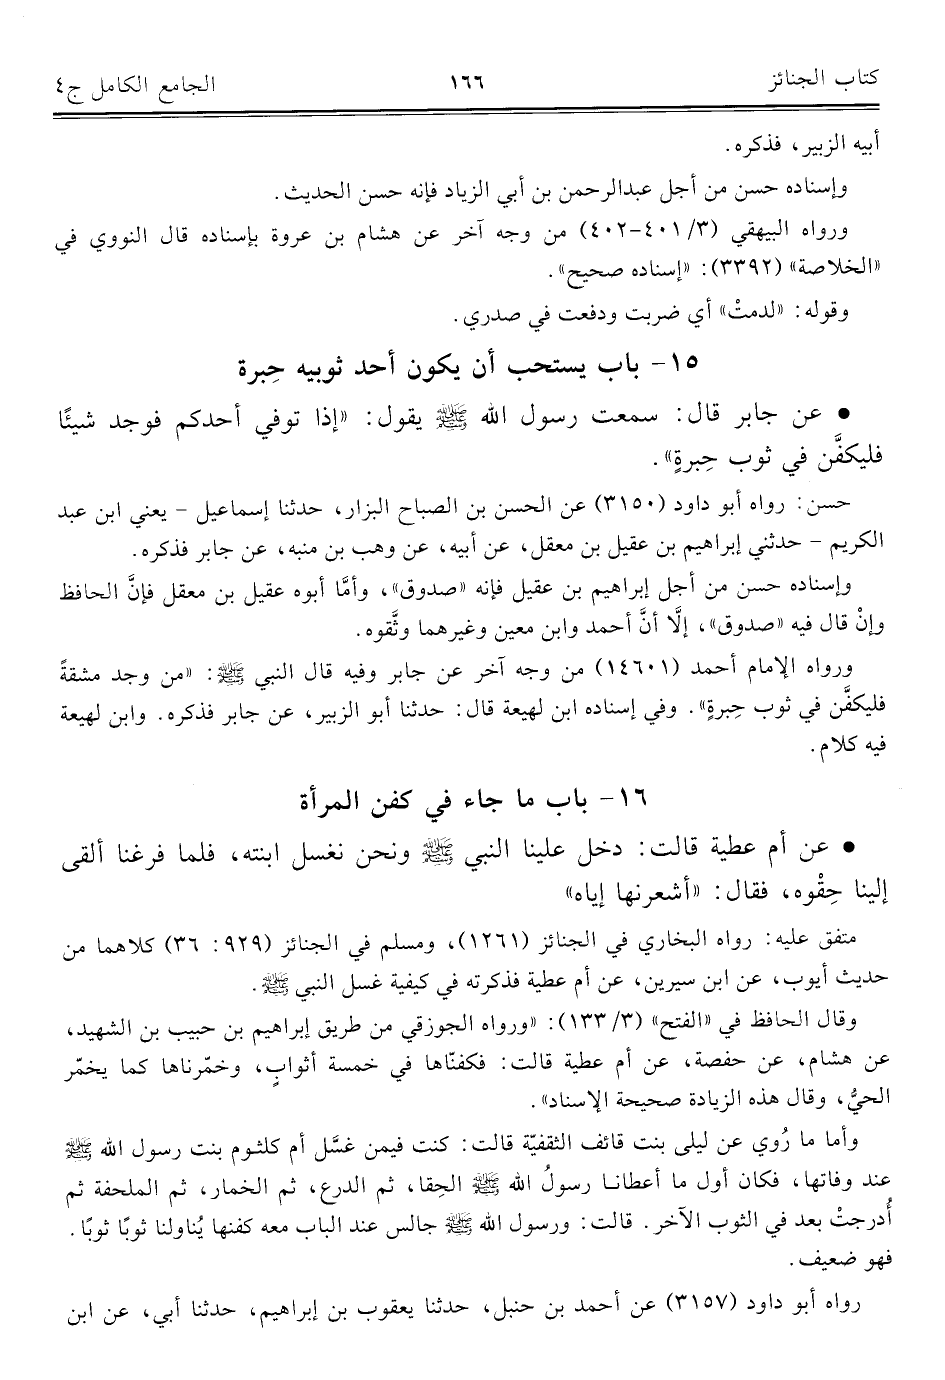 كتاب الجنائز ١٦٦ الجامع الكامل ج٤
أبيه الزبير، فذكره.
وإسناده حسن من أجل عبدالرحمن بن أبي الزياد فإنه حسن الحديث.
ورواه البيهقي (٣/ ٤٠١-٤٠٢) من وجه آخر عن هشام بن عروة بإسناده قال النووي في
«الخلاصة» (٣٣٩٢): «إسناده صحيح».
وقوله: «لدمتْ» أي ضربت ودفعت في صدري.
١٥- باب يستحب أن يكون أحد ثوبيه حِبرة
• عن جابر قال: سمعت رسول الله ﷺ يقول: «إذا توفي أحدكم فوجد شيئًا
فليكفَّن في ثوب حِبرةٍ».
حسن: رواه أبو داود (٣١٥٠) عن الحسن بن الصباح البزار، حدثنا إسماعيل - يعني ابن عبد
الكريم - حدثني إبراهيم بن عقيل بن معقل، عن أبيه، عن وهب بن منبه، عن جابر فذكره.
وإسناده حسن من أجل إبراهيم بن عقيل فإنه «صدوق»، وأمَّا أبوه عقيل بن معقل فإنَّ الحافظ
وإنْ قال فيه «صدوق»، إلَّا أنَّ أحمد وابن معين وغيرهما وثَّقوه.
ورواه الإمام أحمد (١٤٦٠١) من وجه آخر عن جابر وفيه قال النبي ﷺ: «من وجد مشقةً
فليكفَّن في ثوب حِبرةٍ». وفي إسناده ابن لهيعة قال: حدثنا أبو الزبير، عن جابر فذكره. وابن لهيعة
فيه كلام.
١٦- باب ما جاء في كفن المرأة
• عن أم عطية قالت: دخل علينا النبي ﷺ ونحن نغسل ابنته، فلما فرغنا ألقى
إلينا حِقْوه، فقال: «أشعرنها إياه»
متفق عليه: رواه البخاري في الجنائز (١٢٦١)، ومسلم في الجنائز (٩٢٩: ٣٦) كلاهما من
حديث أيوب، عن ابن سيرين، عن أم عطية فذكرته في كيفية غسل النبي ﷺ.
وقال الحافظ في «الفتح» (٣/ ١٣٣): «ورواه الجوزقي من طريق إبراهيم بن حبيب بن الشهيد،
عن هشام، عن حفصة، عن أم عطية قالت: فكفنّاها في خمسة أثوابٍ، وخمّرناها كما يخمّر
الحيُّ، وقال هذه الزيادة صحيحة الإسناد».
وأما ما رُوي عن ليلى بنت قائف الثقفيّة قالت: كنت فيمن غسَّل أم كلثوم بنت رسول الله ﷺ
عند وفاتها، فكان أول ما أعطانا رسولُ الله ﷺ الحِقا، ثم الدرع، ثم الخمار، ثم الملحفة ثم
أُدرجتْ بعد في الثوب الآخر. قالت: ورسول الله ﷺ جالس عند الباب معه كفنها يُناولنا ثوبًا ثوبًا.
فهو ضعيف.
رواه أبو داود (٣١٥٧) عن أحمد بن حنبل، حدثنا يعقوب بن إبراهيم، حدثنا أبي، عن ابن